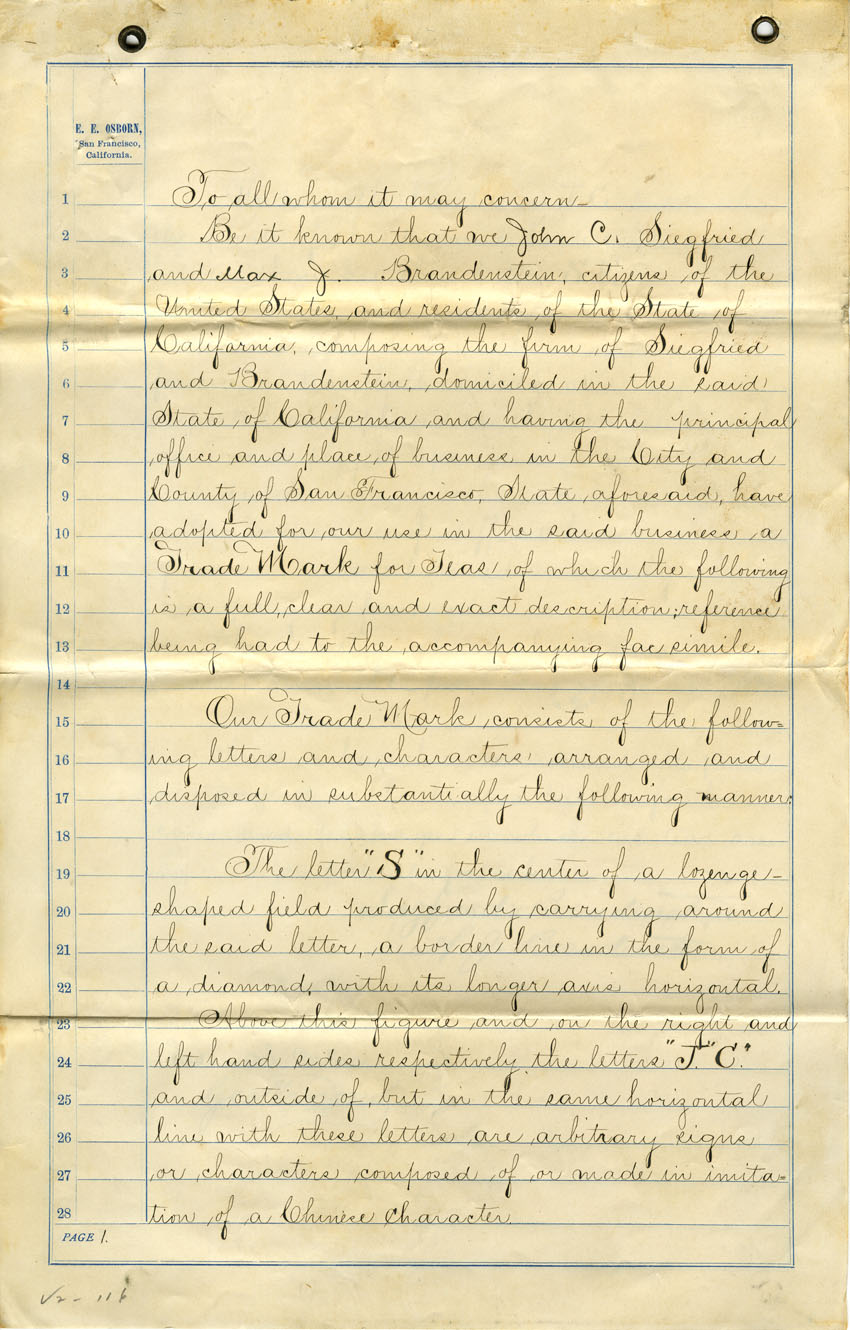 E. E. OSBORN,
San Francisco,
California.
1 To all whom it may concern-
2 Be it known that we John C. Siegfried
3 and Max J. Brandenstein, citizens of the
4 United States, and residents of the State of
5 California, composing the firm of Siegfried
6 and Brandenstein, domiciled in the said
7 State of California and having the principal
8 office and place of business in the City and
9 County of San Francisco, State aforesaid, have
10 adopted for our use in the said business a
11 Trade Mark for Teas, of which the following
12 is a full, clear and exact description; reference
13 being had to the accompanying fac simile.
14
15 Our Trade Mark consists of the follow=
16 ing letters and characters arranged and
17 disposed in substantially the following manner:
18
19 The letter "S" in the center of a lozenge-
20 shaped field produced by carrying around
21 the said letter, a border line in the form of
22 a diamond, with its longer axis horizontal.
23 Above this figure and on the right and
24 left hand sides respectively the letters "J." "C."
25 and outside of, but in the same horizontal
26 line with these letters are arbitrary signs
27 or characters composed of or made in imita=
28 tion of a Chinese Character.
PAGE 1.
V2 - 116